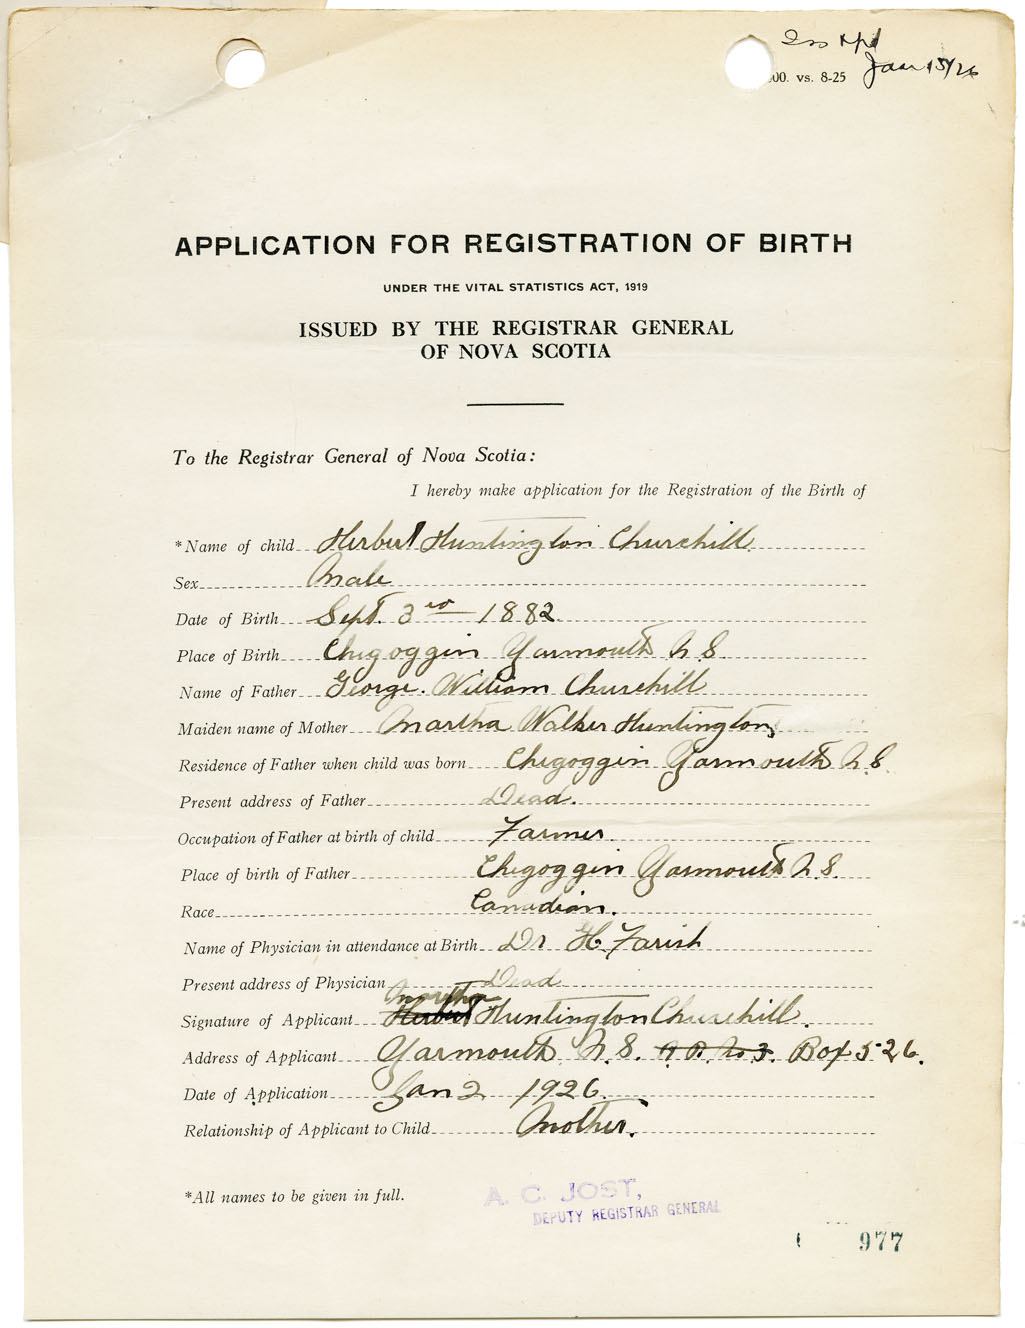 Jan 15/26
00. vs. 8-25
APPLICATION FOR REGISTRATION OF BIRTH
UNDER THE VITAL STATISTICS ACT, 1919
ISSUED BY THE REGISTRAR GENERAL
OF NOVA SCOTIA
To the Registrar General of Nova Scotia:
I hereby make application for the Registration of the Birth of
*Name of child Herbert Huntington Churchill
Sex Male
Date of Birth Sept. 3rd 1882
Place of Birth Chegoggin Yarmouth N.S.
Name of Father George William Churchill
Maiden name of Mother Martha Walker Huntington
Residence of Father when child was born Chegoggin Yarmouth N.S.
Present address of Father Dead.
Occupation of Father at birth of child Farmer
Place of birth of Father Chegoggin Yarmouth N.S.
Race Canadian.
Name of Physician in attendance at Birth Dr H. Farish
Present address of Physician Dead
Martha
Signature of Applicant Herbert Huntington Churchill.
Address of Applicant Yarmouth N.S. R. R. No 3. Box 526.
Date of Application Jan 2 1926.
Relationship of Applicant to Child Mother.
*All names to be given in full.
A. C. JOST,
DEPUTY REGISTRAR GENERAL
977